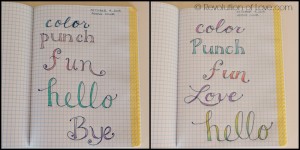 color
punch
fun
hello
Bye
© Revolution of Love.com
color
Punch
fun
Love
hello